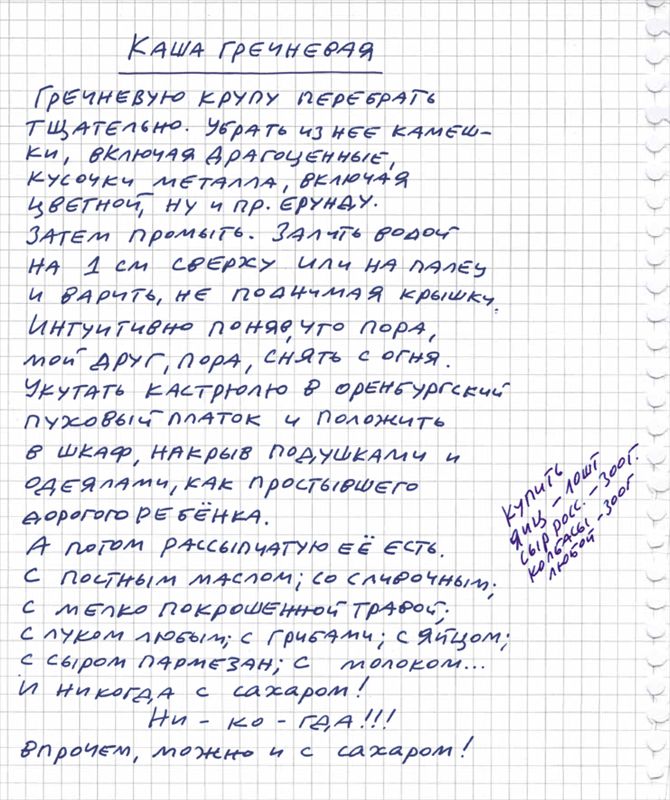 Каша гречневая
Гречневую крупу перебрать
тщательно. Убрать из нее камеш-
ки, включая драгоценные,
кусочки металла, включая
цветной, ну и пр. ерунду.
Затем промыть. Залить водой
на 1 см сверху или на палец
и варить, не поднимая крышку.
Интуитивно поняв, что пора,
мой друг, пора, снять с огня.
Укутать кастрюлю в оренбургский
пуховый платок и положить
в шкаф, накрыв подушками и
одеялами, как простывшего
дорогого ребёнка.
А потом рассыпчатую её есть.
С постным маслом; со сливочным;
с мелко покрошенной травой;
с луком любым; с грибами; с яйцом;
с сыром пармезан; с молоком...
И никогда с сахаром!
Ни - ко - гда!!!
Впрочем, можно и с сахаром!
Купить
Яиц - 10шт
Сыр росс. - 300г.
Колбасы - 300г
любой